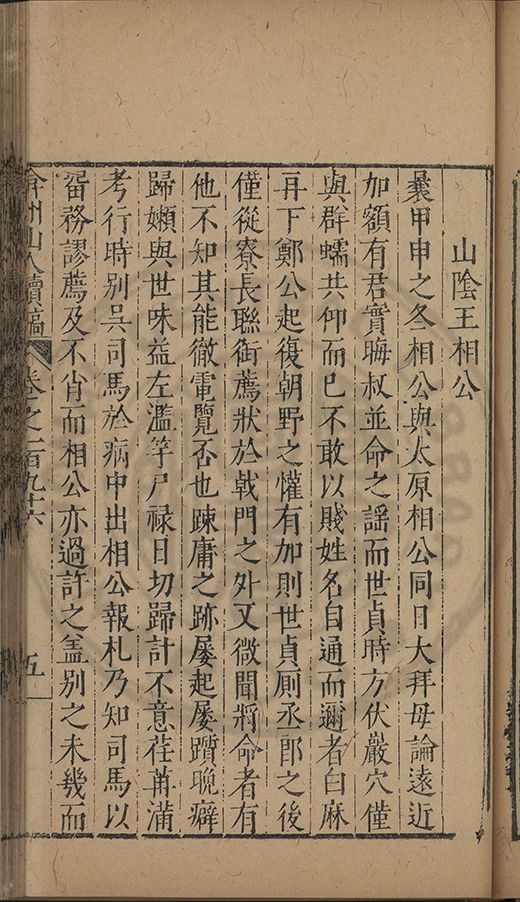 山陰王相公
曩甲申之冬相公與太原相公同日大拜毋論遠近
加額有君實晦叔並命之謡而世貞時方伏巖穴僅
與群蠕共仰而已不敢以賤姓名自通而邇者白麻
再下鄭公起復朝野之懽有加則世貞厠丞郎之後
僅從寮長聯銜薦狀於戟門之外又微聞將命者有
他不知其能徹電覽否也踈庸之跡屡起屡躓晩癖
歸嬾與世味益左濫竽尸禄日切歸計不意荏苒滿
考行時别吳司馬於病中出相公報札乃知司馬以
畱務謬薦及不肖而相公亦過許之盖别之未幾而
弇州山人續稿
卷之一百九十六
五